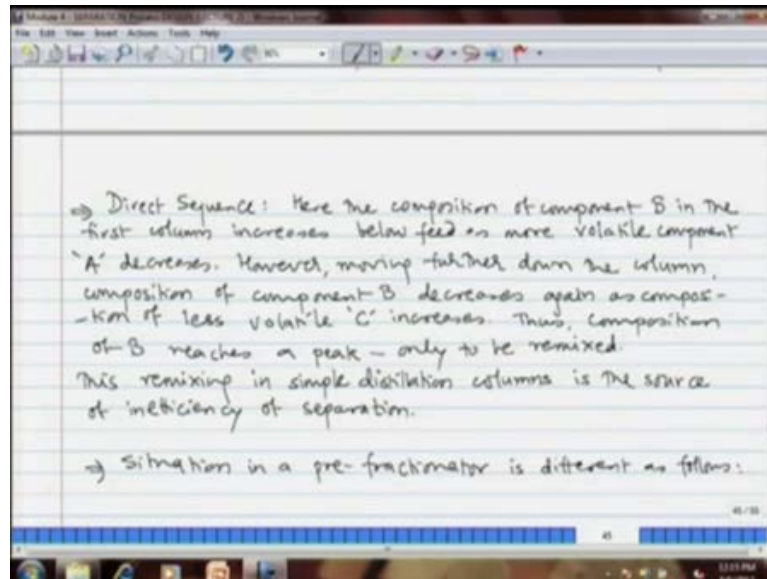 Module 4 - SEPARATION Process DESIGN (LECTURE 2) - Windows Journal
File Edit View Insert Actions Tools Help
⇒ Direct Sequence: Here the composition of component B in the
first column increases below feed as more volatile component
'A' decreases. However, moving further down the column,
composition of component B decreases again as compos-
-tion of less volatile 'C' increases. Thus, composition
of B reaches a peak - only to be remixed.
This remixing in simple distillation columns is the source
of inefficiency of separation.
⇒ Situation in a pre-fractionator is different as follows:
45
12:15 PM